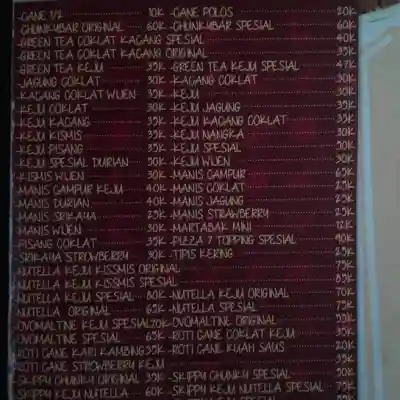 -CANE 1/2 10K -CANE POLOS 20K
-CHUNKYBAR ORIGINAL 60K -CHUNKYBAR SPESIAL 60K
-GREEN TEA COKLAT KACANG SPESIAL 40K
-GREEN TEA COKLAT KACANG ORIGINAL 35K
-GREEN TEA KEJU 35K -GREEN TEA KEJU SPESIAL 47K
-JAGUNG COKLAT 30K -KACANG COKLAT 30K
-KACANG COKLAT WIJEN 35K -KEJU 30K
-KEJU COKLAT 30K -KEJU JAGUNG 35K
-KEJU KACANG 35K -KEJU KACANG COKLAT 35K
-KEJU KISMIS 35K -KEJU NANGKA 30K
-KEJU PISANG 35K -KEJU SPESIAL 50K
-KEJU SPESIAL DURIAN 50K -KEJU WIJEN 30K
-KISMIS WIJEN 30K -MANIS CAMPUR 65K
-MANIS CAMPUR KEJU 40K -MANIS COKLAT 25K
-MANIS DURIAN 40K -MANIS JAGUNG 25K
-MANIS SRIKAYA 25K -MANIS STRAWBERRY 25K
-MANIS WIJEN 30K -MARTABAK MINI 12K
-PISANG COKLAT 35K -PIZZA 7 TOPPING SPESIAL 90K
-SRIKAYA STROWBERRY 30K -TIPIS KERING 25K
-NUTELLA KEJU KISSMIS ORIGINAL 75K
-NUTELLA KEJU KISSMIS SPESIAL 85K
-NUTELLA KEJU SPESIAL 80K -NUTELLA KEJU ORIGINAL 70K
-NUTELLA ORIGINAL 65K -NUTELLA SPESIAL 75K
-OVOMALTINE KEJU SPESIAL 70K -OVOMALTINE ORIGINAL 55K
-OVOMALTINE SPESIAL 65K -ROTI CANE COKLAT KEJU 30K
-ROTI CANE KARI KAMBING 35K -ROTI CANE KUAH SAUS 20K
-ROTI CANE STROWBERRY KEJU 35K
-SKIPPY CHUNKY ORIGINAL 35K -SKIPPY CHUNKY SPESIAL 50K
-SKIPPY KEJU NUTELLA 60K -SKIPPY KEJU NUTELLA SPESIAL 75K